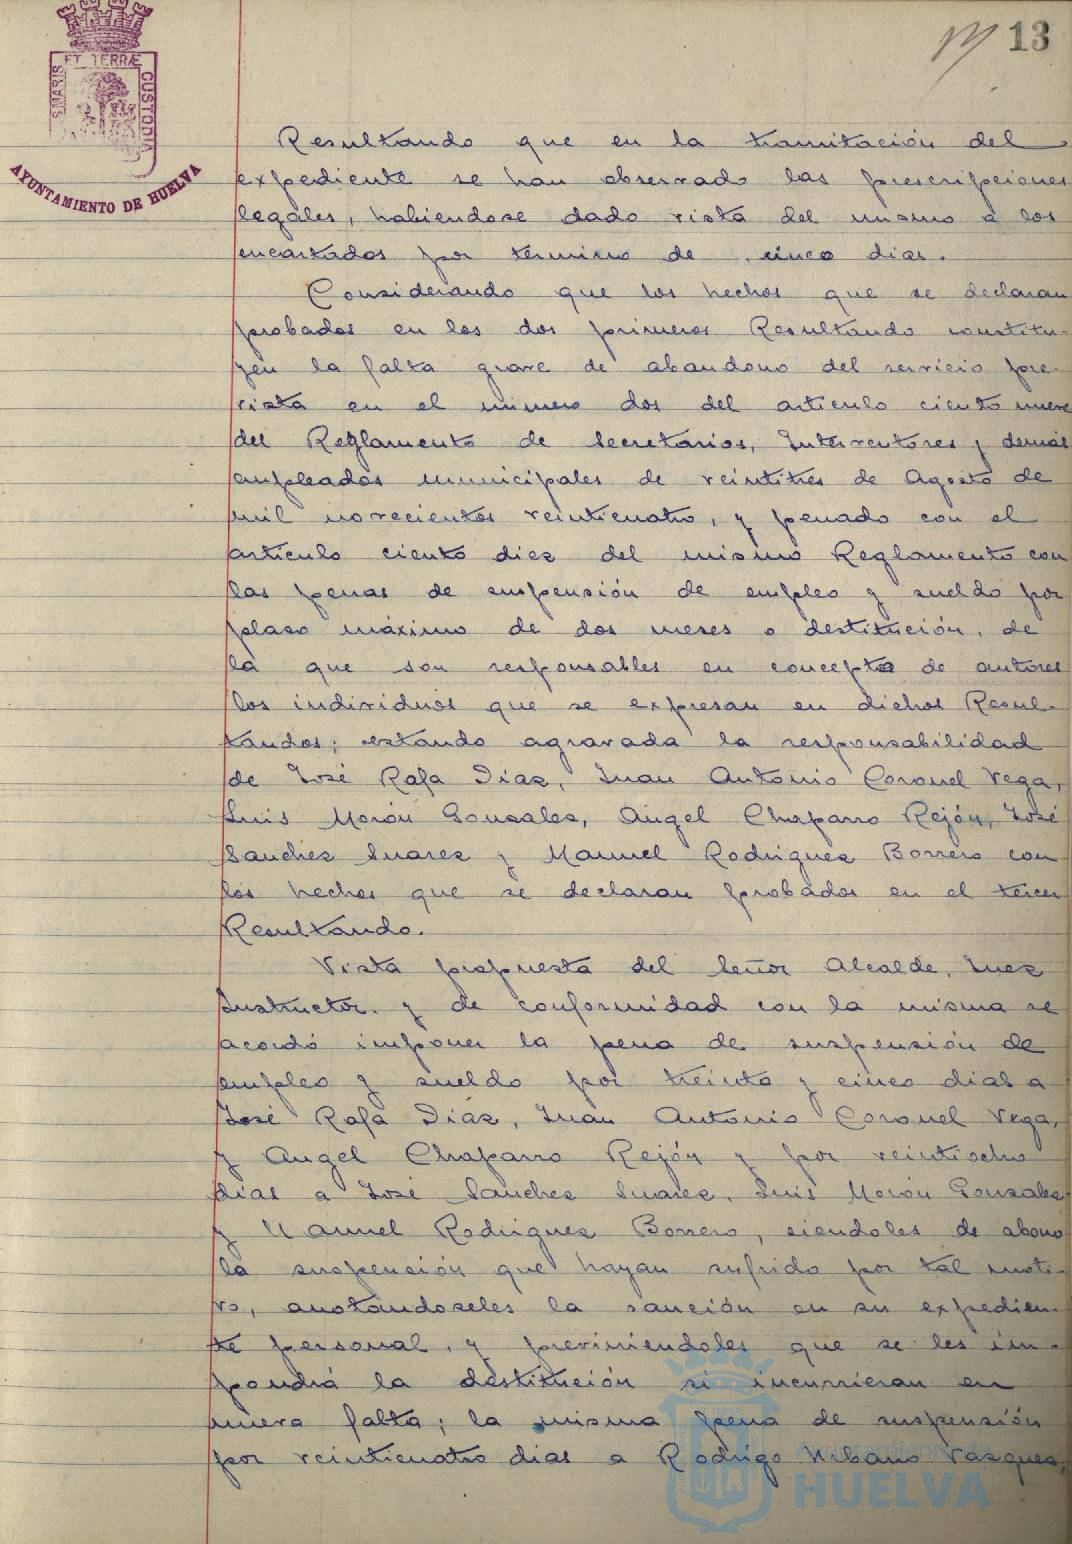 13
S MARIS ET TERRÆ CUSTODIA
AYUNTAMIENTO DE HUELVA
Resultando que en la tramitación del
expediente se han observado las prescripciones
legales, habiendose dado vista del mismo a los
encartados por termino de cinco dias.
Considerando que los hechos que se declaran
probados en los dos primeros Resultando constitu-
yen la falta grave de abandono del servicio pre-
vista en el número dos del articulo ciento nueve
del Reglamento de Secretarios, Interventores y demás
empleados municipales de veintitres de Agosto de
mil novecientos veinticuatro, y penado con el
articulo ciento diez del mismo Reglamento con
las penas de suspensión de empleo y sueldo por
plaso máximo de dos meses o destitución, de
la que son responsables en concepto de autores
los individuos que se expresan en dichos Resul-
tandos; estando agravada la responsabilidad
de José Rafa Diaz, Juan Antonio Coronel Vega,
Luis Morón Gonsales, Angel Chaparro Rejón, José
Sanchez Suarez y Manuel Rodriguez Borrero con
los hechos que se declaran probados en el tercer
Resultando.
Vista propuesta del Señor Alcalde, Juez
Instructor. y de conformidad con la misma se
acordó imponer la pena de suspensión de
empleo y sueldo por treinta y cinco dias a
José Rafa Diáz, Juan Antonio Coronel Vega,
y Angel Chaparro Rejón y por veintiocho
dias a José Sanchez Suarez, Luis Morón Gonsalez
y Manuel Rodriguez Borrero, siendoles de abono
la suspensión que hayan sufrido por tal moti-
vo, anotandoseles la sanción en su expedien-
te personal, y previniendoles que se les im-
pondrá la destitución si incurrieran en
nueva falta; la misma pena de suspensión
por veinticuatro dias a Rodrigo Urbano Vazquez,
Ayuntamiento de
HUELVA